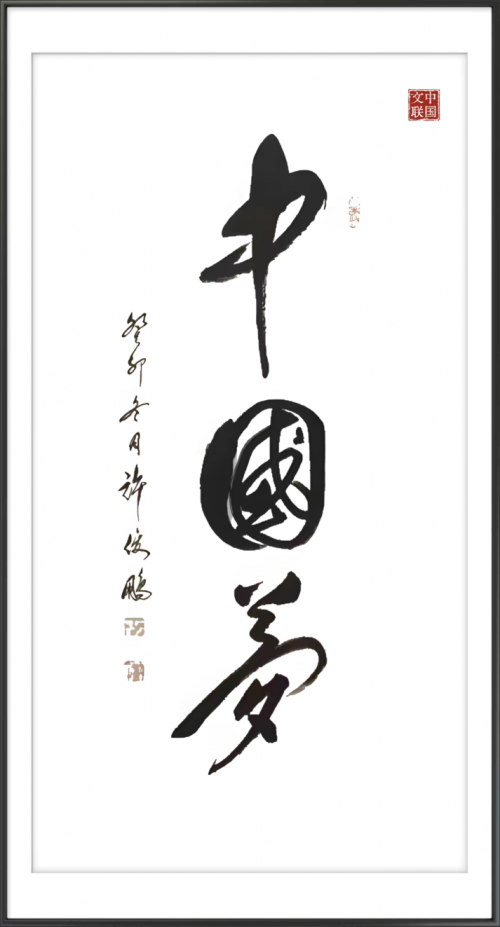 中國夢
癸卯冬月許俊鵬
中国
文联